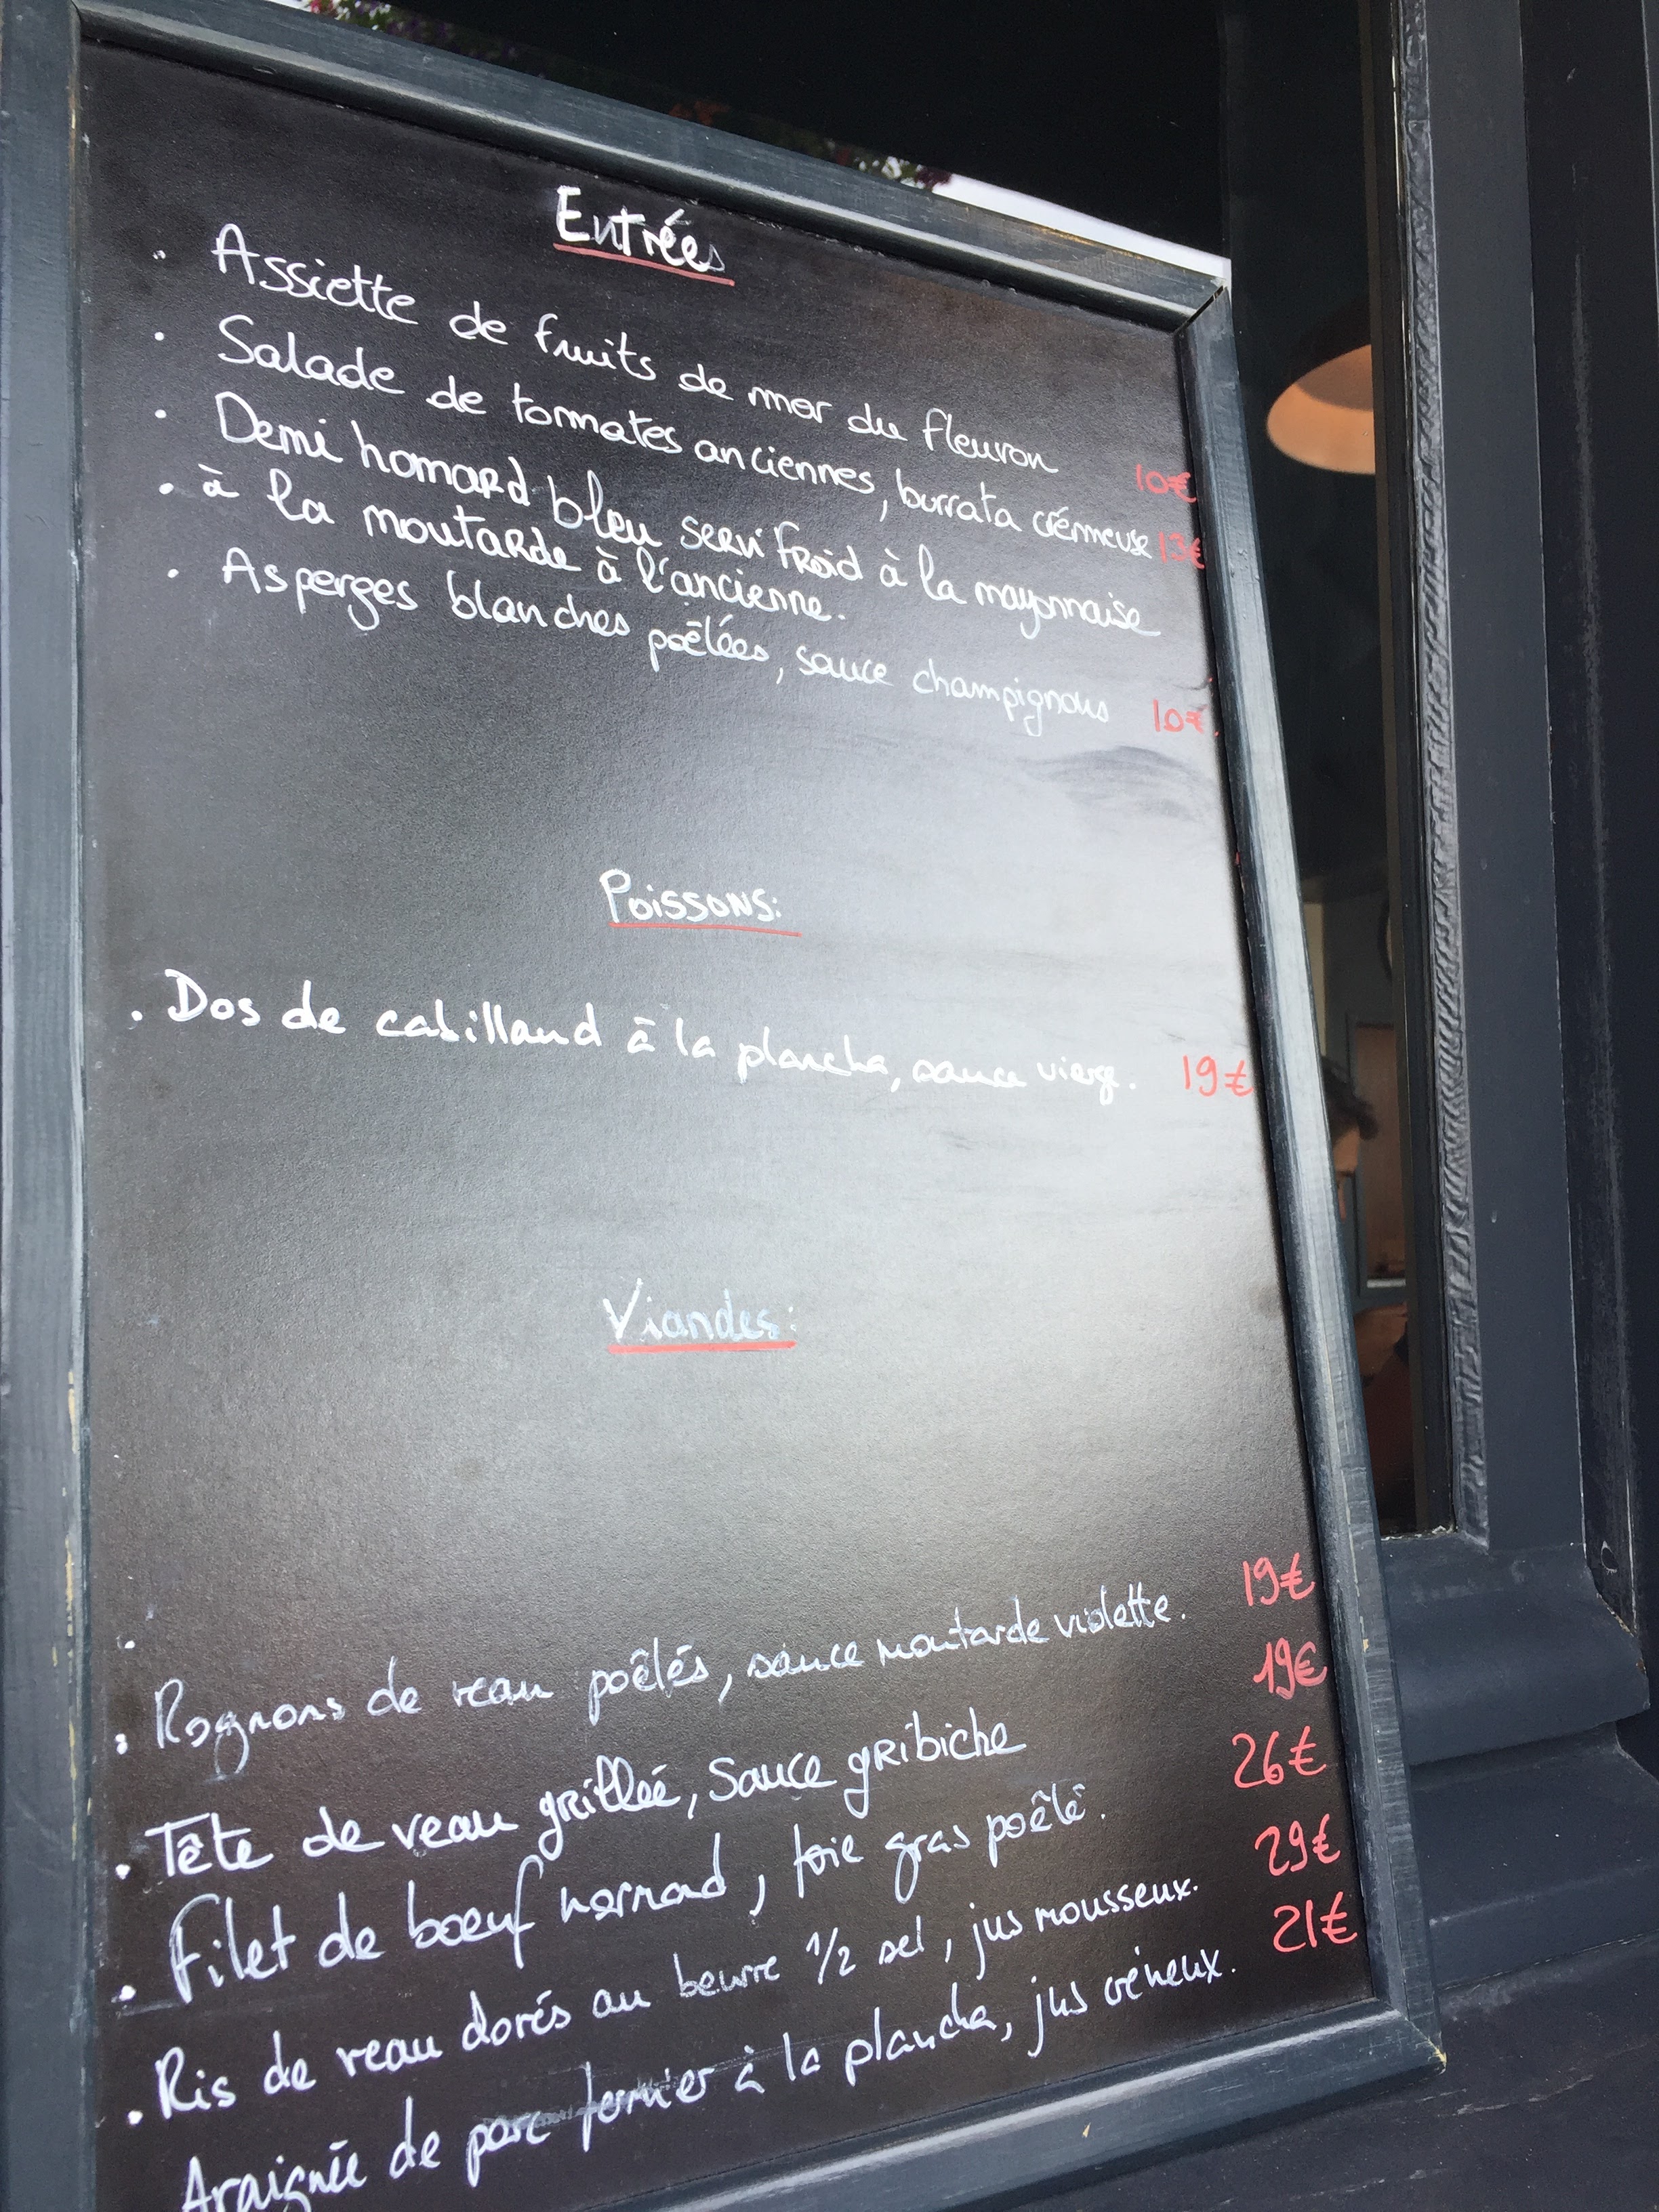 Entrées
. Assiette de fruits de mer du fleuron 10€
. Salade de tomates anciennes, burrata crémeuse 13€
. Demi homard bleu servi froid à la mayonnaise
. à la moutarde à l'ancienne.
. Asperges blanches poêlées, sauce champignons 10€
Poissons:
. Dos de cabillaud à la plancha, sauce vierge. 19€
Viandes:
. Rognons de veau poêlés, sauce moutarde violette. 19€
: Tête de veau grillée, Sauce gribiche 19€
. Filet de boeuf normand, foie gras poêlé. 26€
. Ris de veau dorés au beurre 1/2 sel, jus mousseux. 29€
. Araignée de porc fermier à la plancha, jus crémeux. 21€